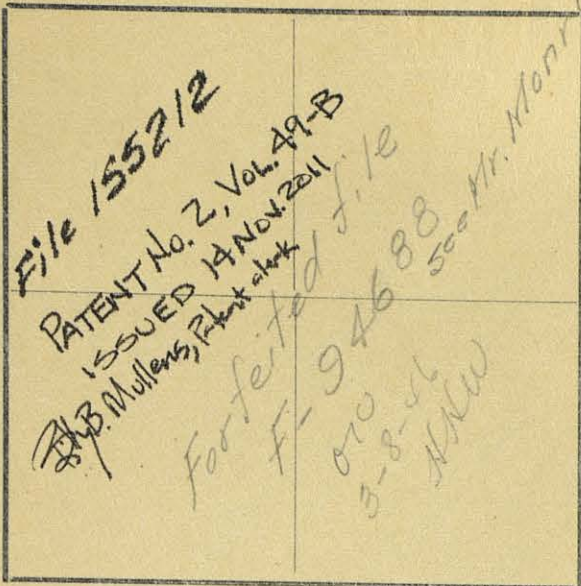 File 155212
PATENT No. 2, VOL. 49-B
ISSUED 14 NOV. 2011
B. Mullens, Patent clerk
Forfeited file
F-94688
See Mr. Mon
3-8-46